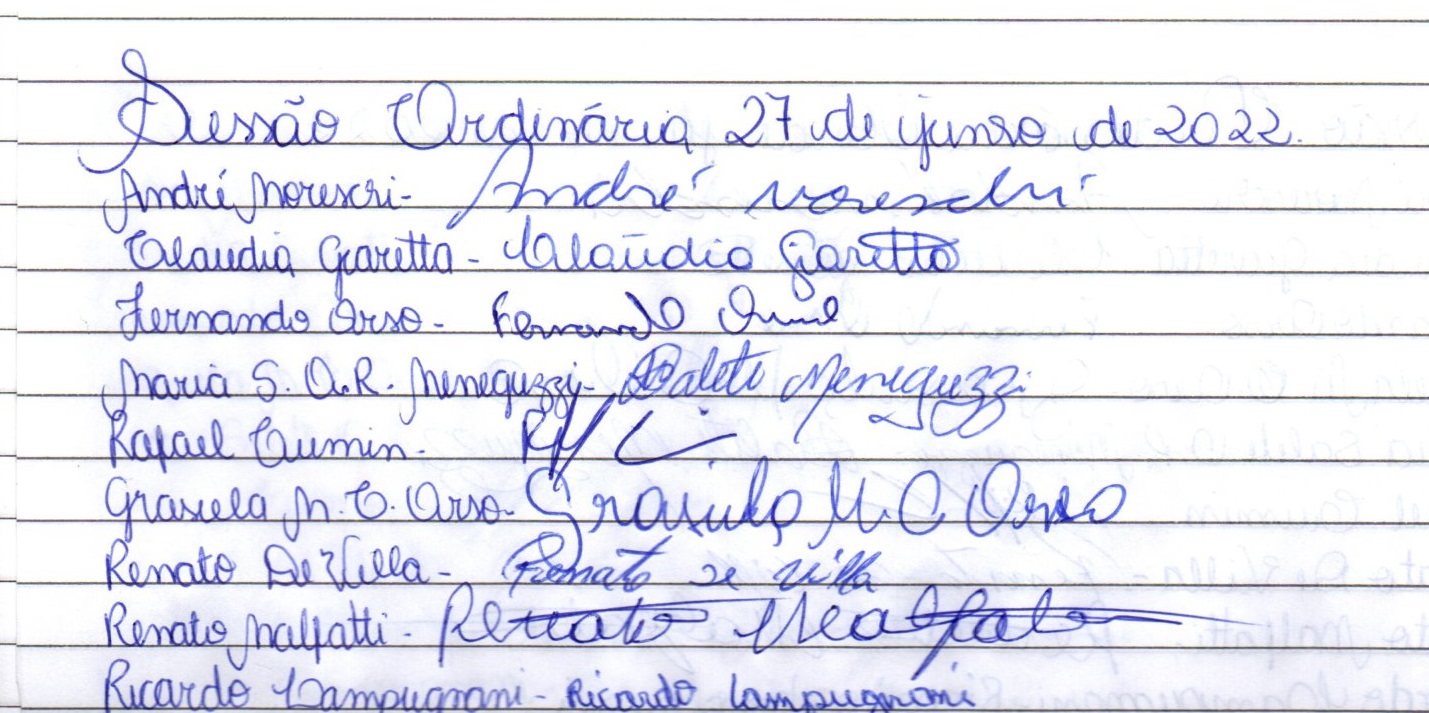 Sessão Ordinária 27 de junho de 2022.
André Moreschi - André Moreschi
Claudia Garetta - Claúdia Garetta
Fernando Orso - Fernando
Maria S. O.R. Meneguzzi - Salete Meneguzzi
Rafael Cumin -
Grasiela M. C. Orso - Grasiela M. C Orso
Renato De Villa - Renato de villa
Renato Malfatti - Renato Malfatti
Ricardo Lampugnani - Ricardo Lampugnani